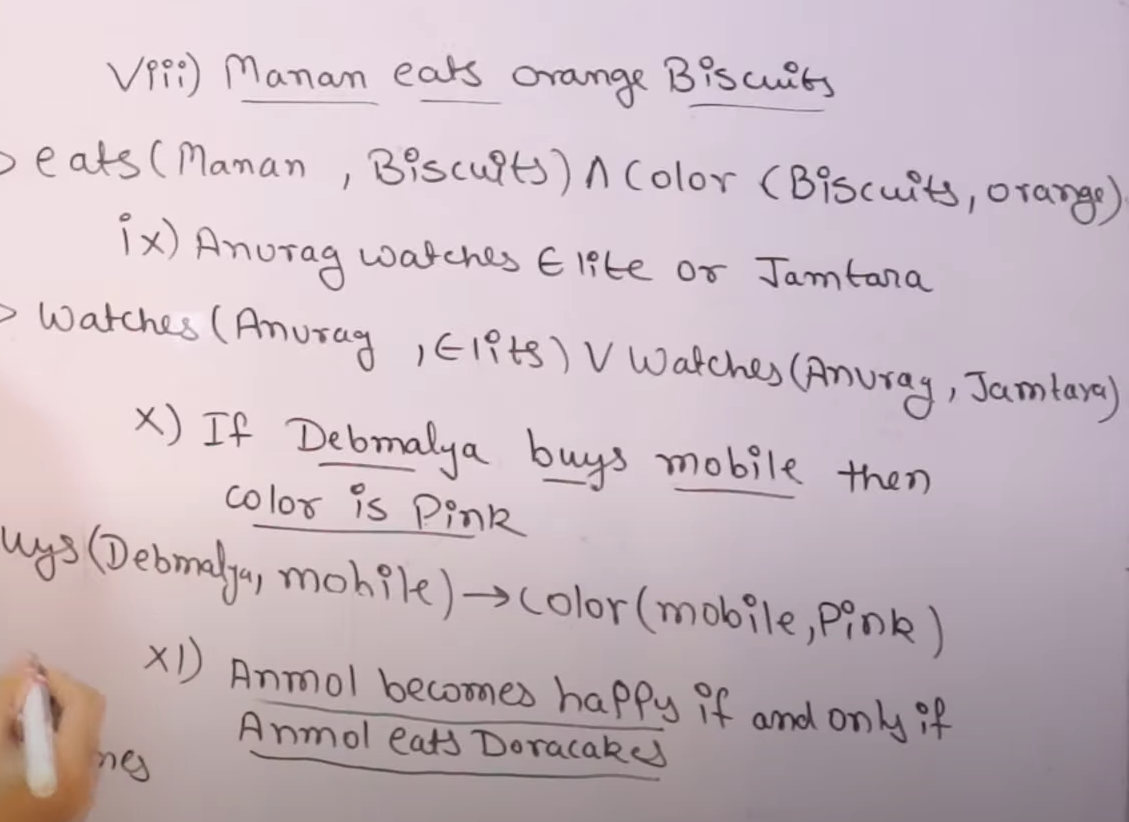 Viii) Manan eats orange Biscuits
eats(Manan , Biscuits) ∧ Color (Biscuits, orange)
ix) Anurag watches Elite or Jamtara
Watches (Anurag , Elits) V Watches (Anurag, Jamtara)
X) If Debmalya buys mobile then
color is Pink
uys (Debmalya, mobile) → Color (mobile, Pink)
XI) Anmol becomes happy if and only if
Anmol eats Doracakes
mes